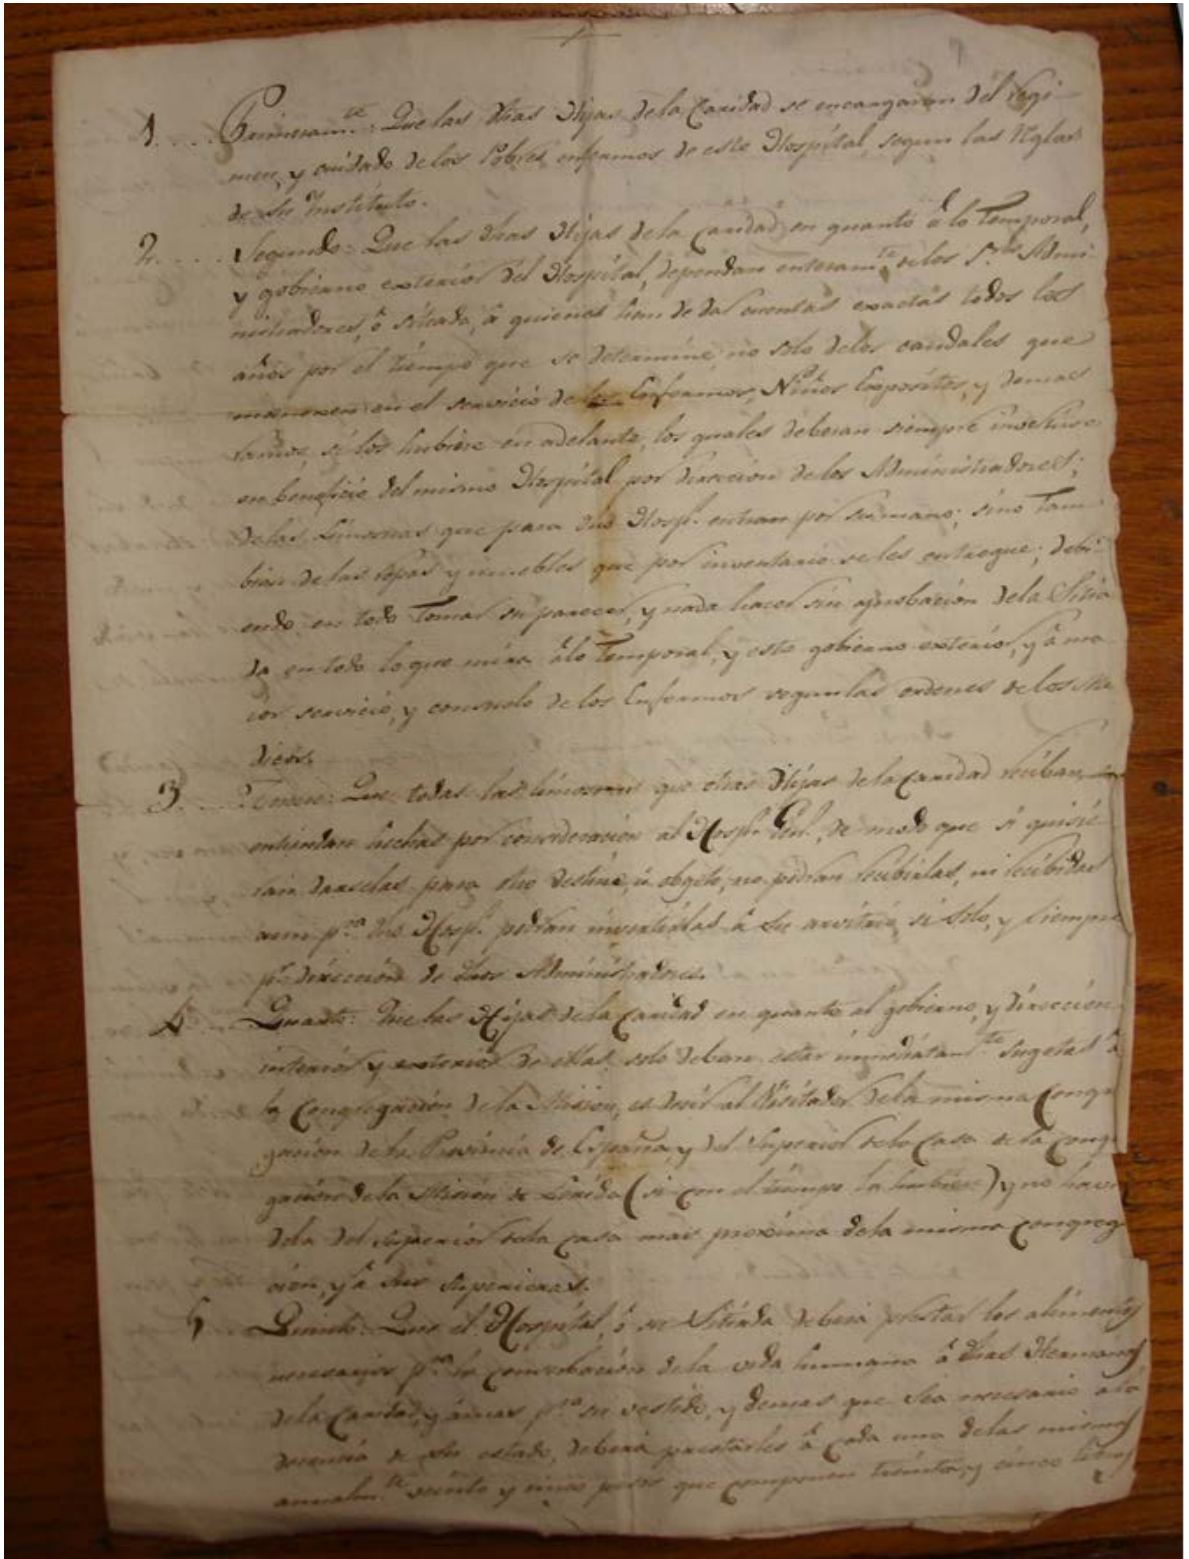 1.... Primeram.te: Que las dhas Hijas de la Caridad se encargaran del regi-
men, y cuidado de los Pobres enfermos de este Hospital, segun las Reglas
de su Instituto.
2..... Segundo: Que las dhas Hijas de la Caridad en quanto â lo Temporal,
y gobierno exterior del Hospital, dependan enteram.te de los S.res Admi-
nistradores, ô Sitiada, â quienes han de dar cuentas exactas todos los
años por el tiempo que se determine, no solo de los caudales que
manexen en el servicio de los Enfermos, Niños Expositos, y demas
ramos, si los hubiere en adelante, los quales deberan siempre invertirse
en beneficio del mismo Hospital por direccion de los Administradores;
de las Limosnas que para dho Hosp.l entran por su mano; sino Tam-
bien de las ropas y muebles que por inventario se les entregue; debi-
endo en todo Tomar su parecer, y nada hacer sin aprobacion de la Sitia
da en todo lo que mira âlo Temporal, y este gobierno exterior, y â ma
ior servicio, y consuelo de los Enfermos segun las ordenes de los Me
dicos.
3.... Tercero: Que todas las limosnas que dhas Hijas de la Caridad reciban, se
entiendan hechas por consideracion al Hosp.l Gen.l, de modo que si quisie
ran darselas para otro destino, û objeto, no podran recibirlas, ni recibidas
aun p.ra dho Hosp.l podran invertirlas â su arvitrio, si solo, y siempre
p.r direccion de dhos Administradores.
4.... Quarto: Que las Hijas de la Caridad en quanto al gobierno, y direccion
interior y exterior de ellas, solo deban estar inmediatam.te sugetas â
la Congregacion de la Mision, es decir al Visitador de la misma Congre
gacion de la Provincia de España, y del Superior de la Casa de la Cong
gacion de la Mision de Lerida (si con el tiempo la hubiese) y no havi
dola del Superior de la Casa mas proxima de la misma Congreg
cion, y â sus Superioras.
5 Quinto: Que el Hospital, ô su Sitiada debera prestar los alimentos
necesarios p.ra la conservacion de la vida humana â dhas Hermanas
de la Caridad, y âmas p.ra su vestido, y demas que sea necesario ala
decencia de su estado, debera prestarles â cada una de las mismas
annualm.te veinte y cinco pesos que componen treinta, y cinco libras